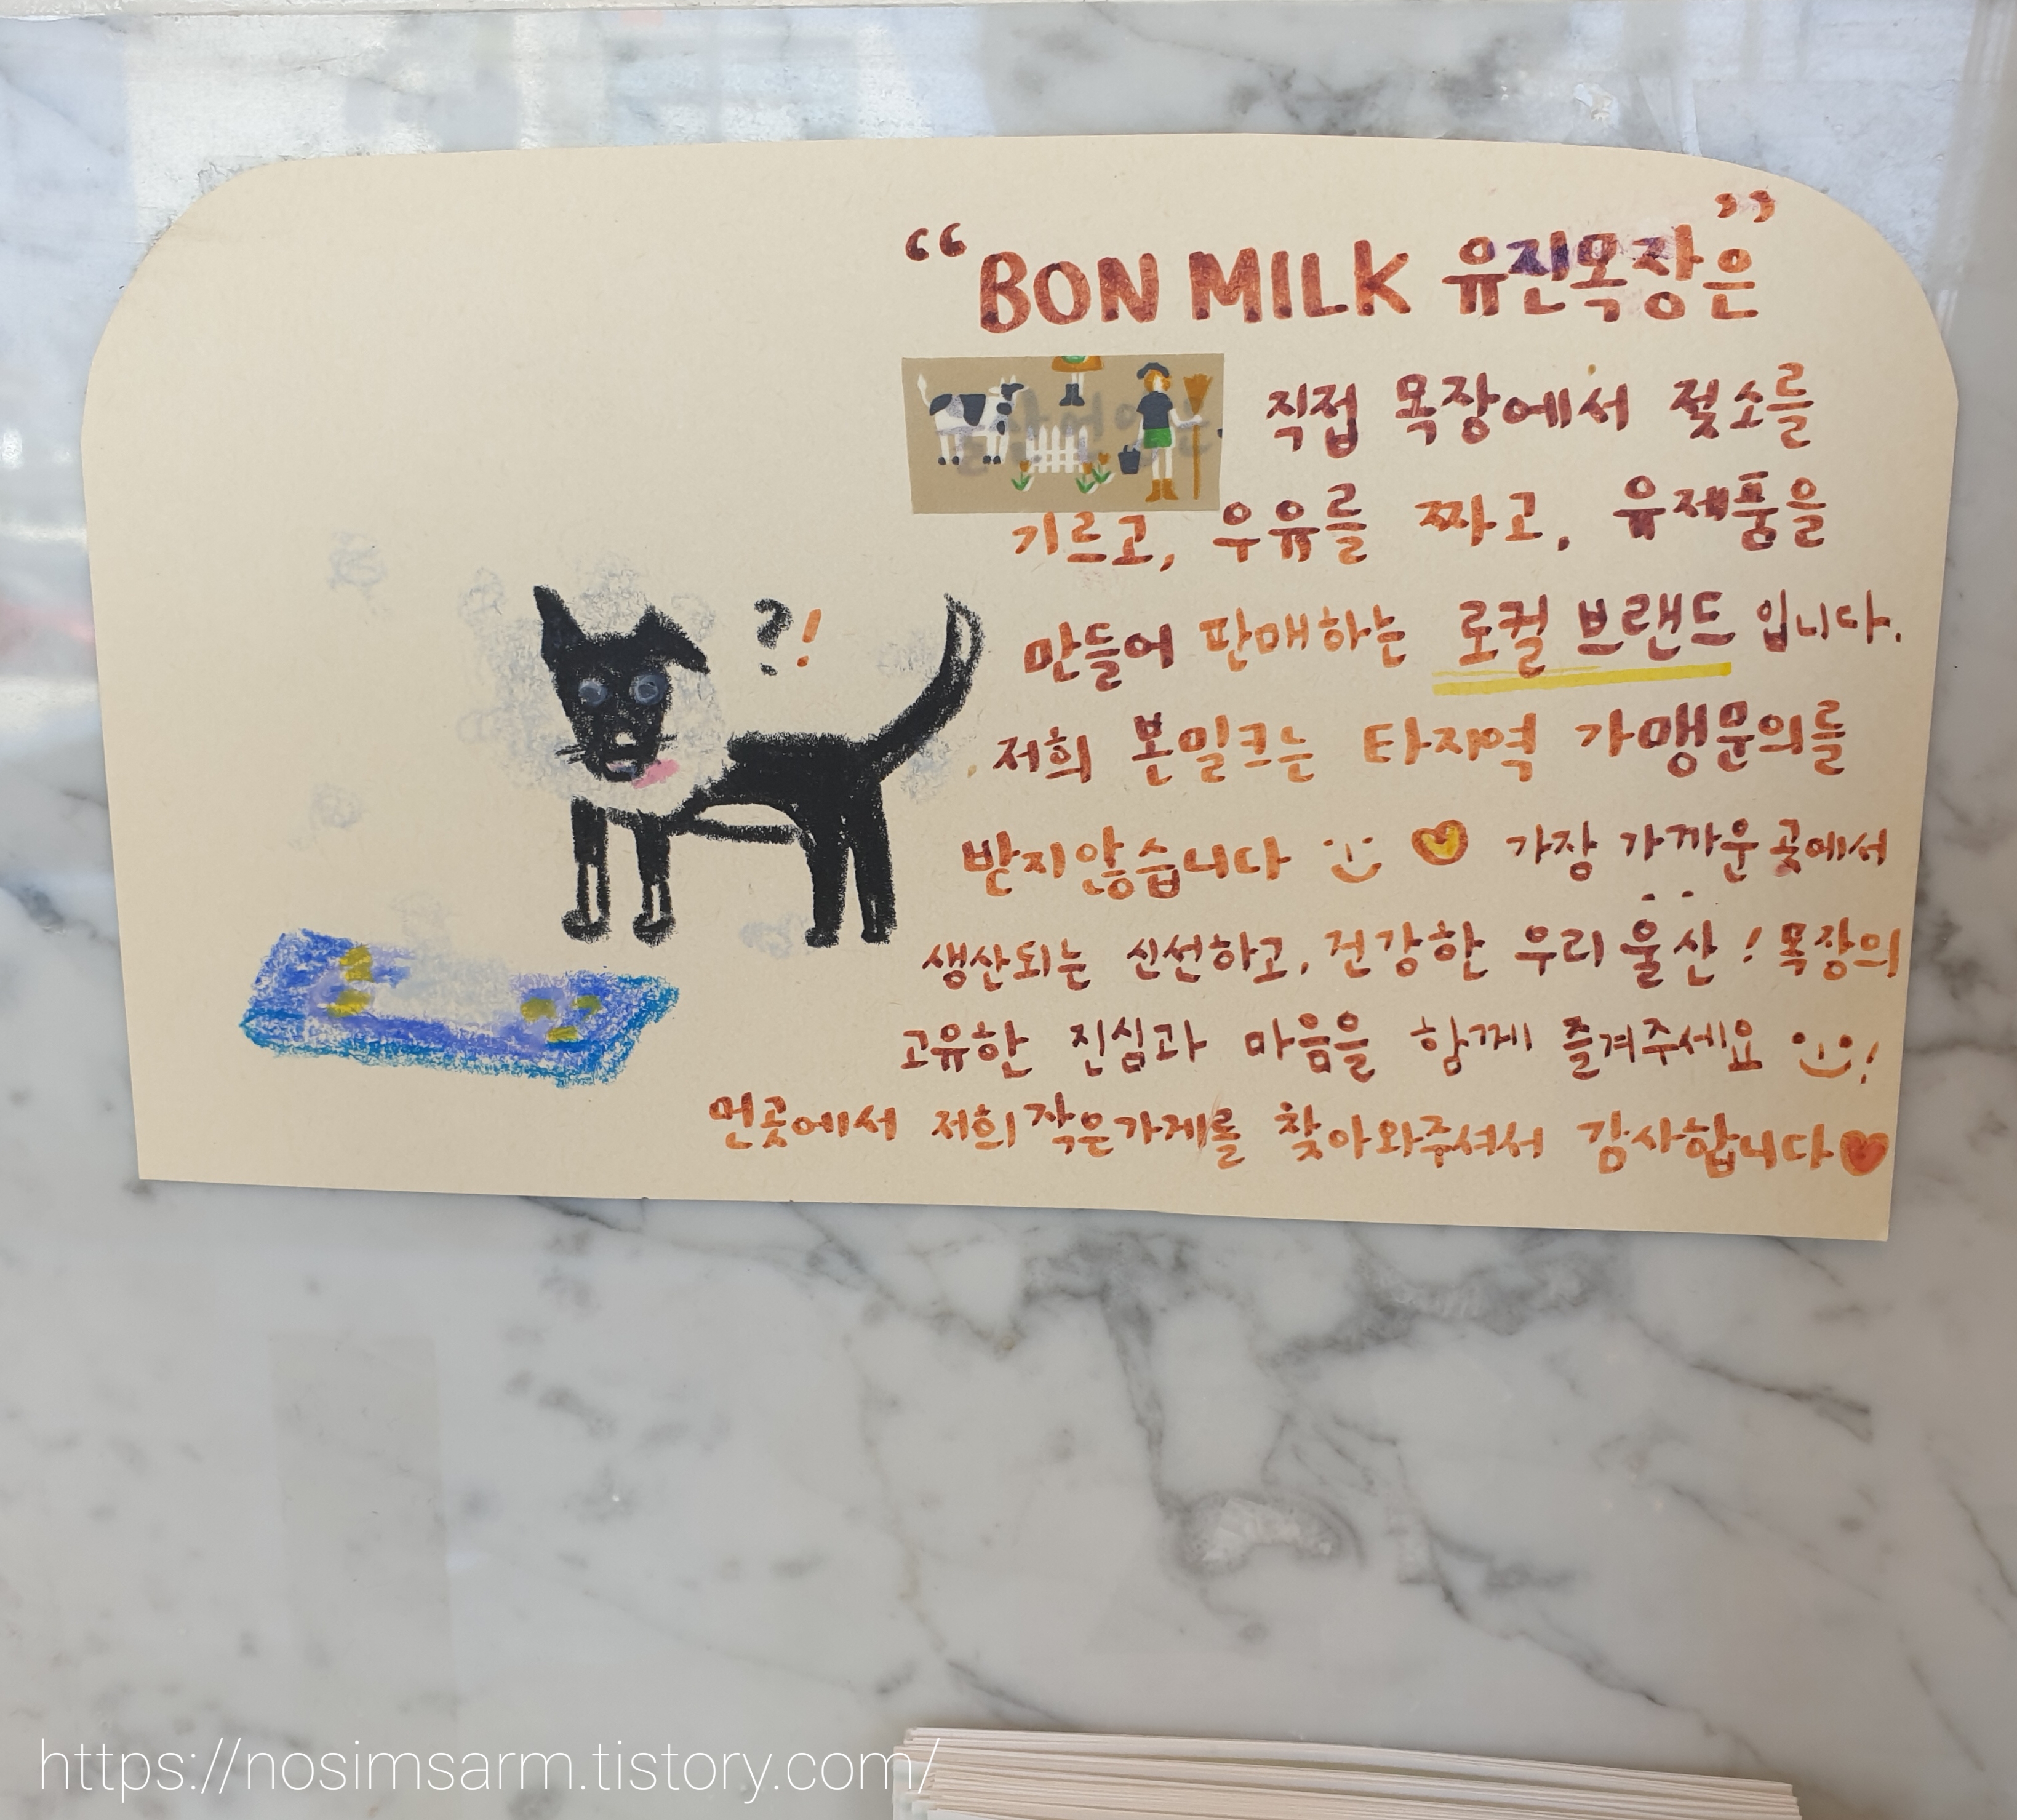 “BON MILK 유진목장은”
직접 목장에서 젖소를
기르고, 우유를 짜고, 유제품을
만들어 판매하는 로컬 브랜드 입니다.
저희 본밀크는 타지역 가맹문의를
받지않습니다 가장 가까운 곳에서
?!
생산되는 신선하고, 건강한 우리 울산! 목장의
고유한 진심과 마음을 함께 즐겨주세요 !
먼곳에서 저희 작은가게를 찾아와주셔서 감사합니다
https://nosimsarm.tistory.com/